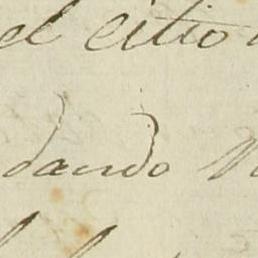 el citio
dando